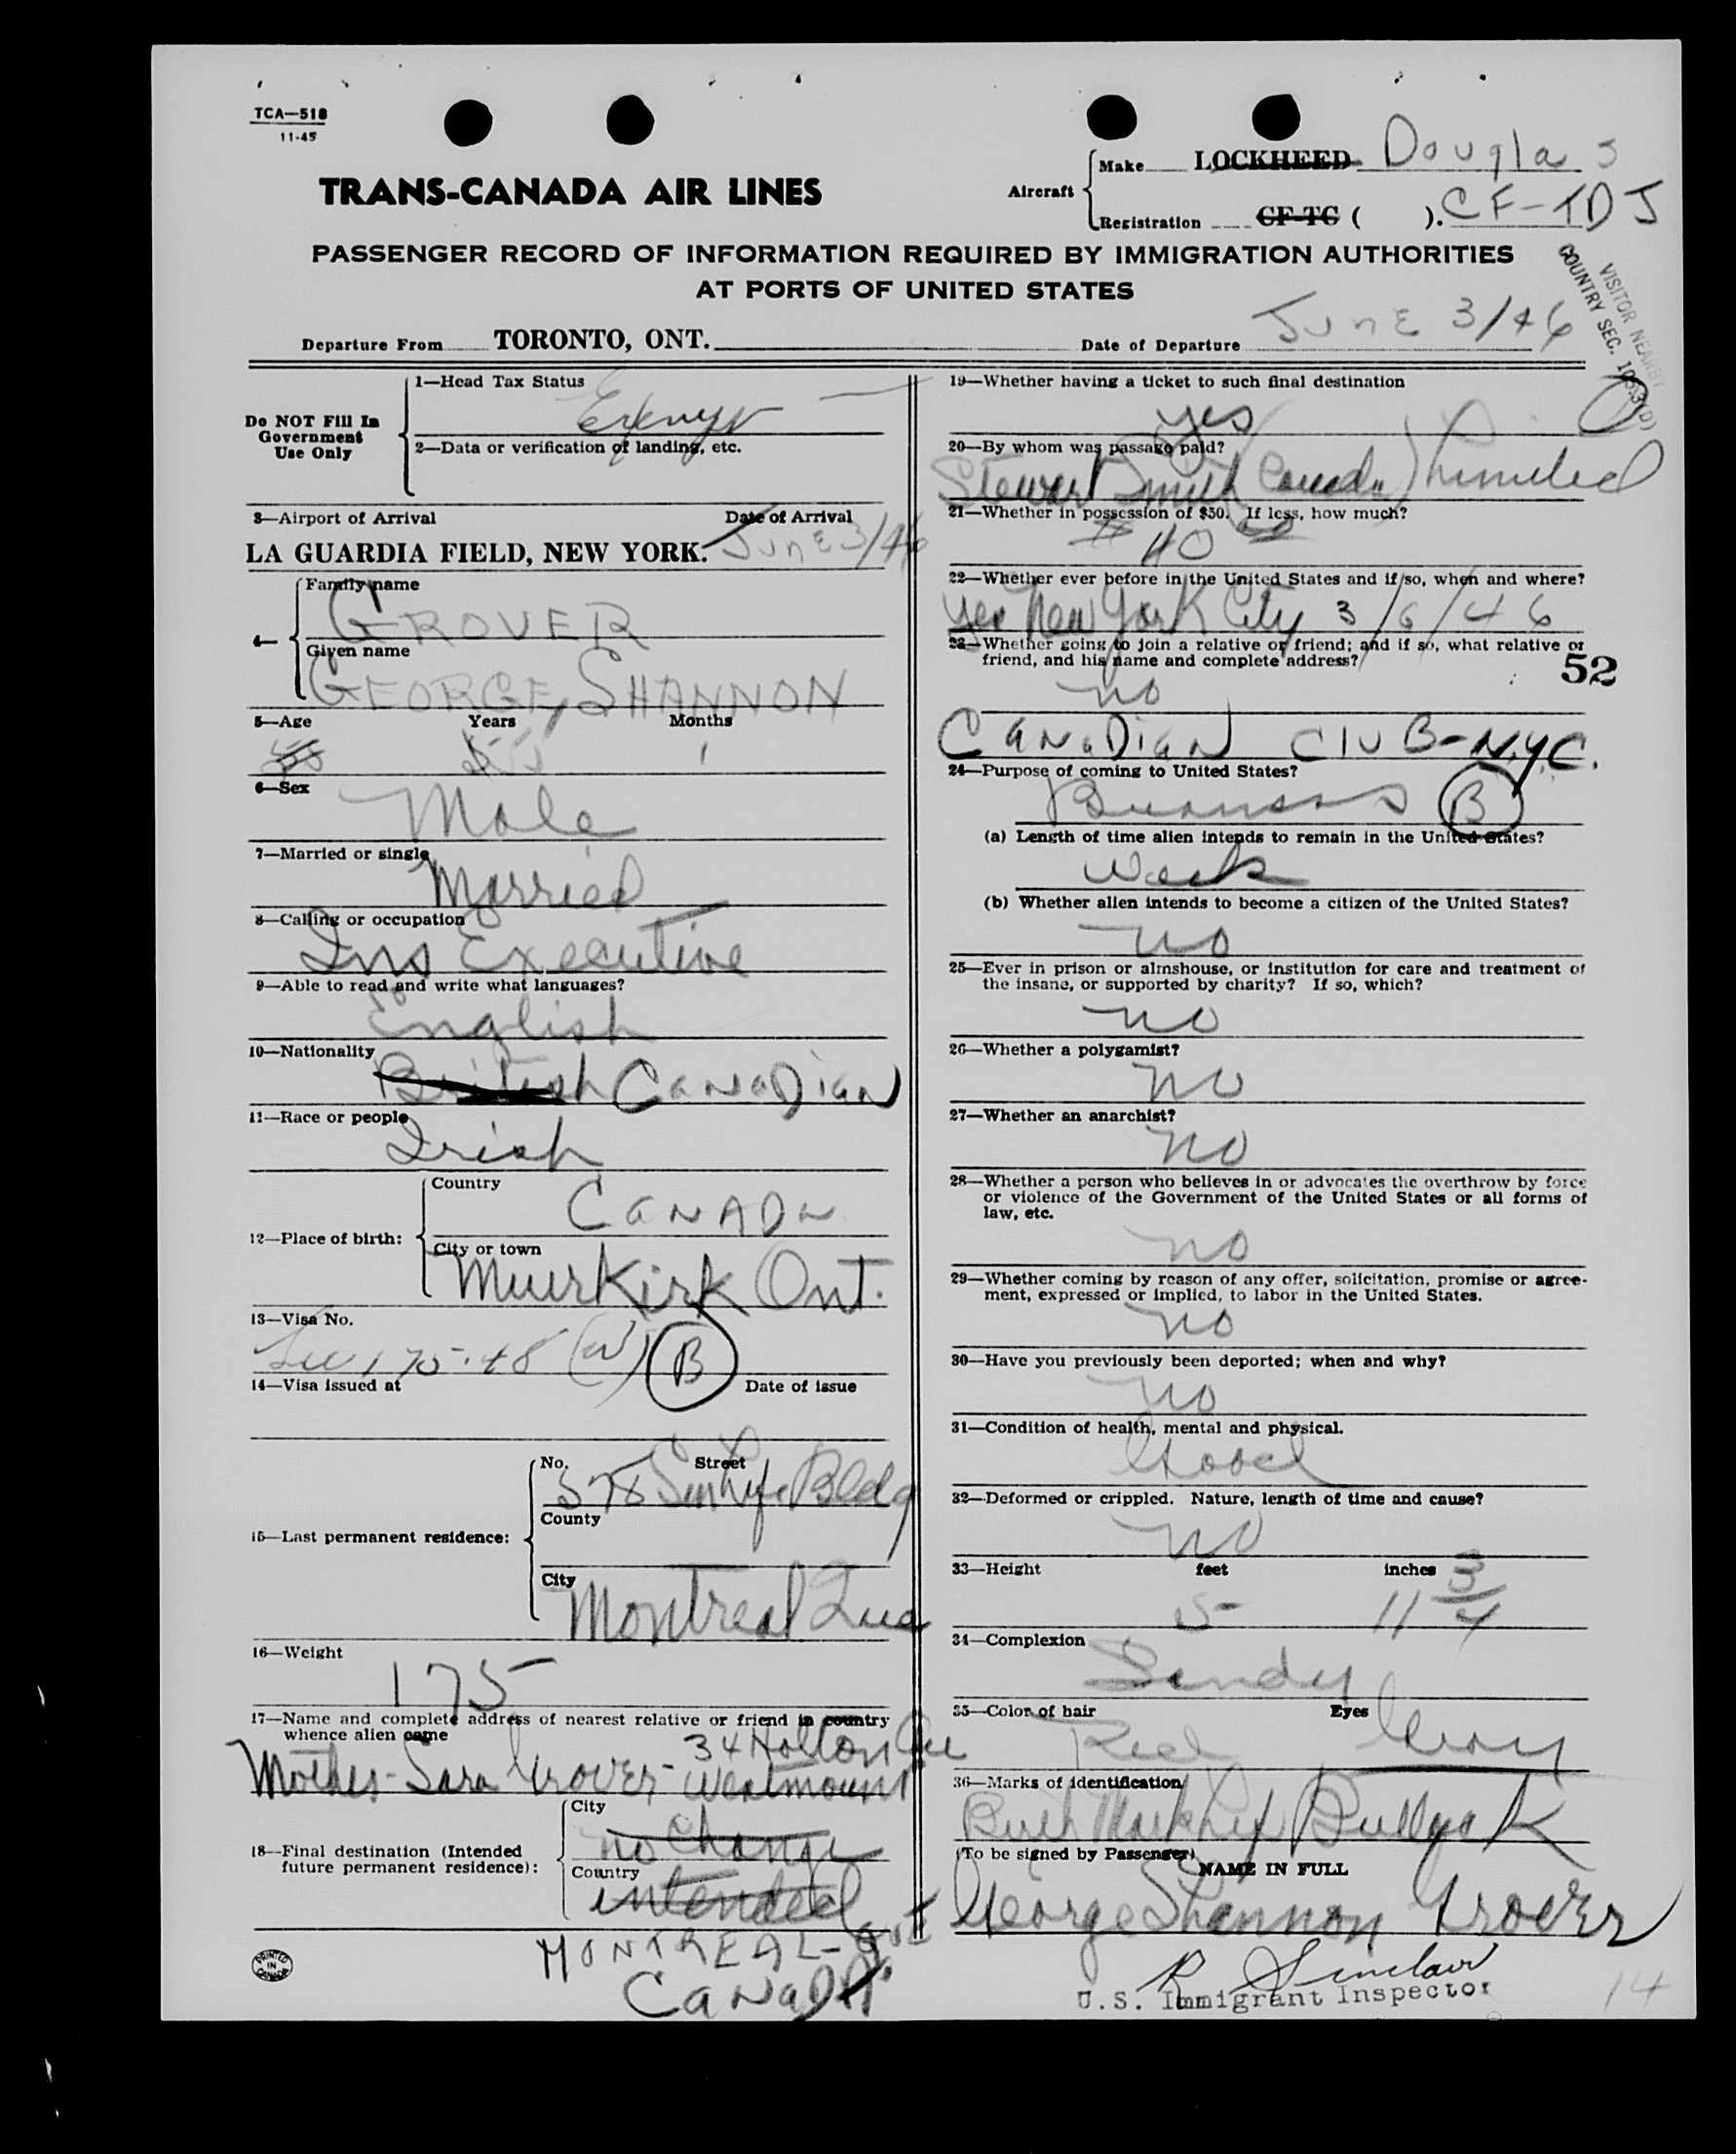 TCA—518
11-45
TRANS-CANADA AIR LINES
Aircraft
Make LOCKHEED Douglas
Registration CF-TC ( ). CF-TDJ
PASSENGER RECORD OF INFORMATION REQUIRED BY IMMIGRATION AUTHORITIES
AT PORTS OF UNITED STATES
VISITOR NEARBY
COUNTRY SEC.
Departure From TORONTO, ONT. Date of Departure June 3/46
Do NOT Fill In
Government
Use Only
1—Head Tax Status
Exempt
2—Data or verification of landing, etc.
3—Airport of Arrival Date of Arrival
LA GUARDIA FIELD, NEW YORK. June 3/46
4—
Family name
GROVER
Given name
GEORGE, SHANNON
5—Age Years Months
55 1
6—Sex
Male
7—Married or single
Married
8—Calling or occupation
Ins Executive
9—Able to read and write what languages?
English
10—Nationality
British Canadian
11—Race or people
Irish
12—Place of birth:
Country
CANADA
City or town
Muirkirk Ont.
13—Visa No.
Sec 175.48 (B)
14—Visa issued at Date of issue
15—Last permanent residence:
No. Street
378 Sun Life Bldg
County
City
Montreal Que
16—Weight
175
17—Name and complete address of nearest relative or friend in country
whence alien came
34 Holton Ave
Mother - Sara Grover - Westmount
18—Final destination (Intended
future permanent residence):
City
no Change
Country
intended
MONTREAL - QUE
CANADA
PRINTED
IN
CANADA
19—Whether having a ticket to such final destination
yes
20—By whom was passage paid?
Stewart Smith (Canada) Limited
21—Whether in possession of $50. If less, how much?
$ 40 00
22—Whether ever before in the United States and if so, when and where?
Yes New York City 3/6/46
23—Whether going to join a relative or friend; and if so, what relative or
friend, and his name and complete address?
52
no
CANADIAN CLUB - N.Y.C.
24—Purpose of coming to United States?
Business B
(a) Length of time alien intends to remain in the United States?
Week
(b) Whether alien intends to become a citizen of the United States?
no
25—Ever in prison or almshouse, or institution for care and treatment of
the insane, or supported by charity? If so, which?
no
26—Whether a polygamist?
no
27—Whether an anarchist?
no
28—Whether a person who believes in or advocates the overthrow by force
or violence of the Government of the United States or all forms of
law, etc.
no
29—Whether coming by reason of any offer, solicitation, promise or agree-
ment, expressed or implied, to labor in the United States.
no
30—Have you previously been deported; when and why?
no
31—Condition of health, mental and physical.
Good
32—Deformed or crippled. Nature, length of time and cause?
no
33—Height feet inches
5 11 3/4
34—Complexion
Sandy
35—Color of hair Eyes
Red Grey
36—Marks of identification
Birth Mark
(To be signed by Passenger)
NAME IN FULL
George Shannon Grover
R Sinclair
U.S. Immigrant Inspector
14